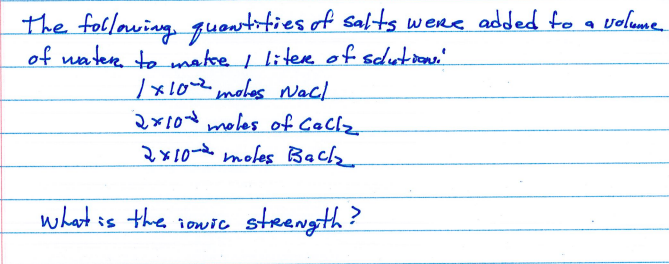 The following quantities of salts were added to a volume
of water to make 1 liter of solution:
1x10-2 moles NaCl
2x10-2 moles of CaCl2
2x10-2 moles BaCl2
What is the ionic strength?